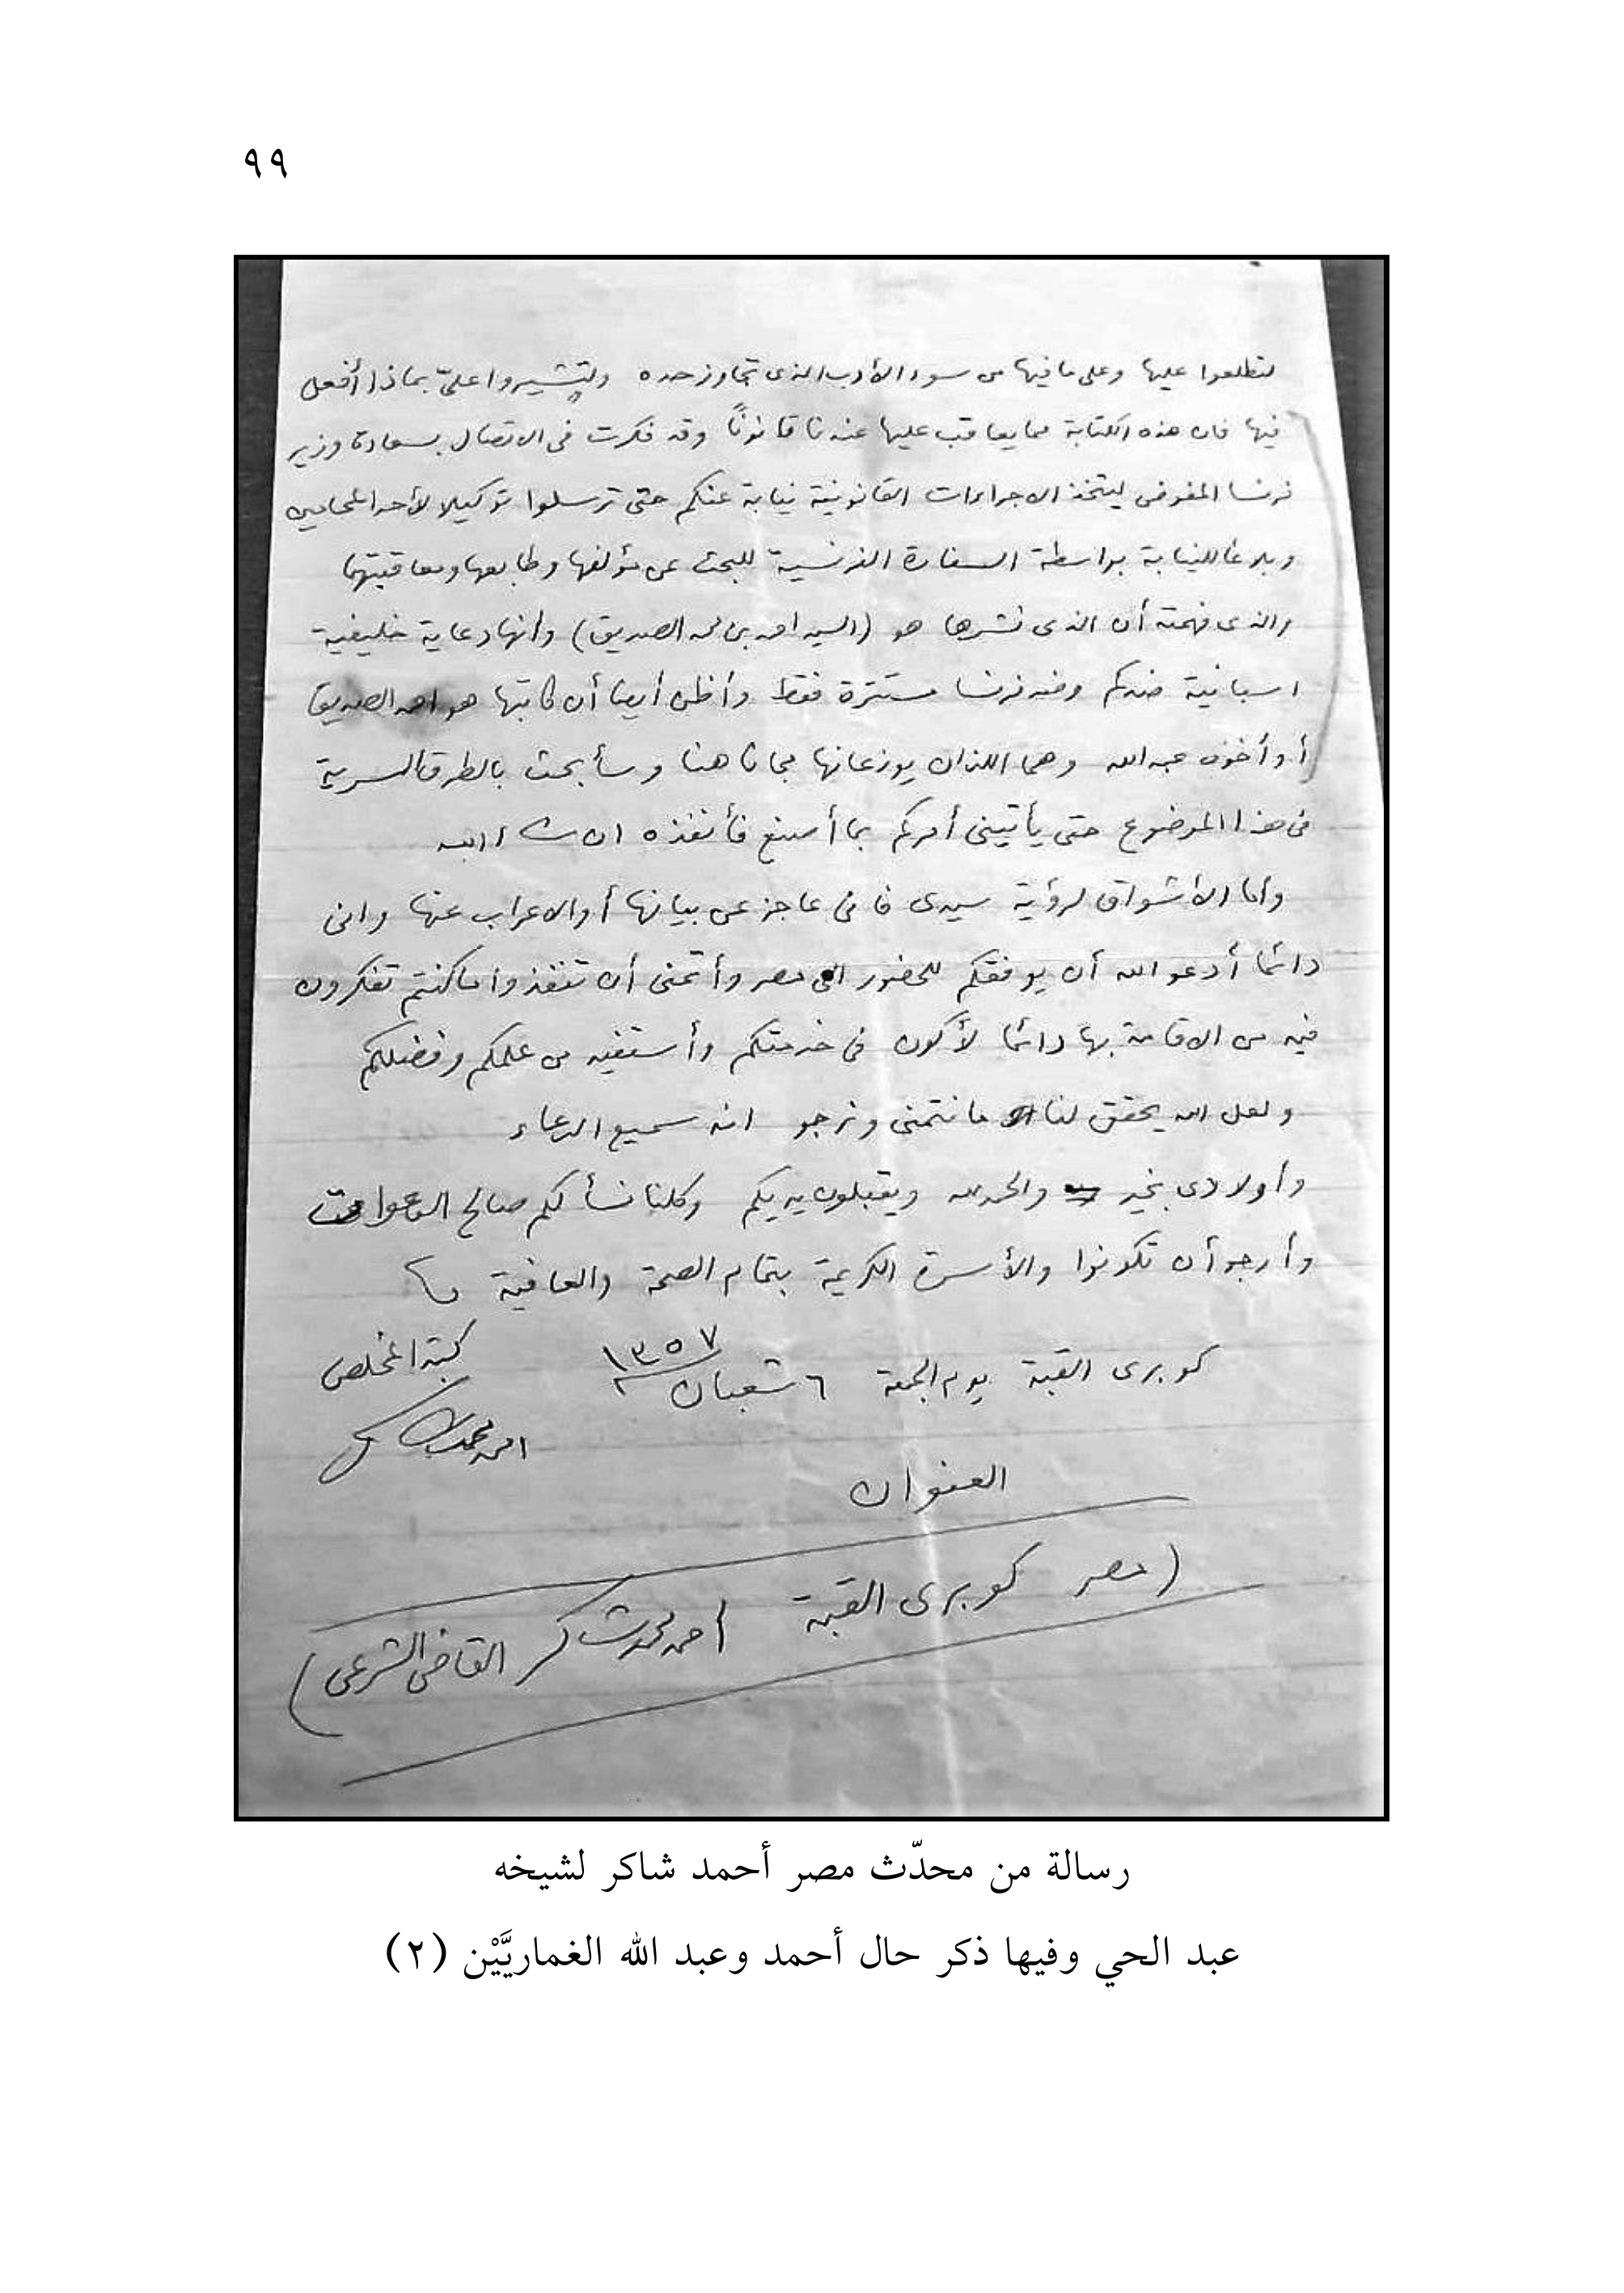 ٩٩
لتطلعوا عليها وعلى ما فيها من سوء الأدب الذى تجاوز حده ولتشيروا علىّ بماذا أفعل
فيها فان هذه الكتابة مما يعاقب عليها عندنا قانونًا وقد فكرت فى الاتصال بسعادة وزير
فرنسا المفوض ليتخذ الاجراءات القانونية نيابة عنكم حتى ترسلوا توكيلا لأحد المحامين
وبلاغا للنيابة بواسطة السفارة الفرنسية للبحث عن مؤلفها وطابعها ومعاقبتهما
والذى فهمته أن الذى نشرها هو (السيد احمد بن محمد الصديق) وأنها دعاية خليفية
اسبانية ضدكم وضد فرنسا مستترة فقط وأظن أيضا أن كاتبها هو احمد الصديق
أو أخوه عبد الله وهما اللذان يوزعانها مجانا هنا وسأبحث بالطرق السرية
فى هذا الموضوع حتى يأتينى أمركم بما أصنع فأنفذه ان شاء الله
وأما الأشواق لرؤية سيدى فانى عاجز عن بيانها أو الاعراب عنها وانى
دائما أدعو الله أن يوفقكم للحضور الى مصر وأتمنى أن تنفذوا ما كنتم تفكرون
فيه من الاقامة بها دائما لأكون فى خدمتكم وأستفيد من علمكم وفضلكم
ولعل الله يحقق لنا ما نتمنى ونرجو انه سميع الدعاء
وأولادى بخير والحمد لله ويقبلون يديكم وكلنا نسألكم صالح الدعوات
وأرجو أن تكونوا والأسرة الكريمة بتمام الصحة والعافية
كوبرى القبة يوم الجمعة ٦ شعبان ١٣٥٧ كتبه المخلص
احمد محمد شاكر
العنوان
(مصر كوبرى القبة أحمد محمد شاكر القاضى الشرعى)
رسالة من محدّث مصر أحمد شاكر لشيخه
عبد الحي وفيها ذكر حال أحمد وعبد الله الغماريَّيْن (٢)